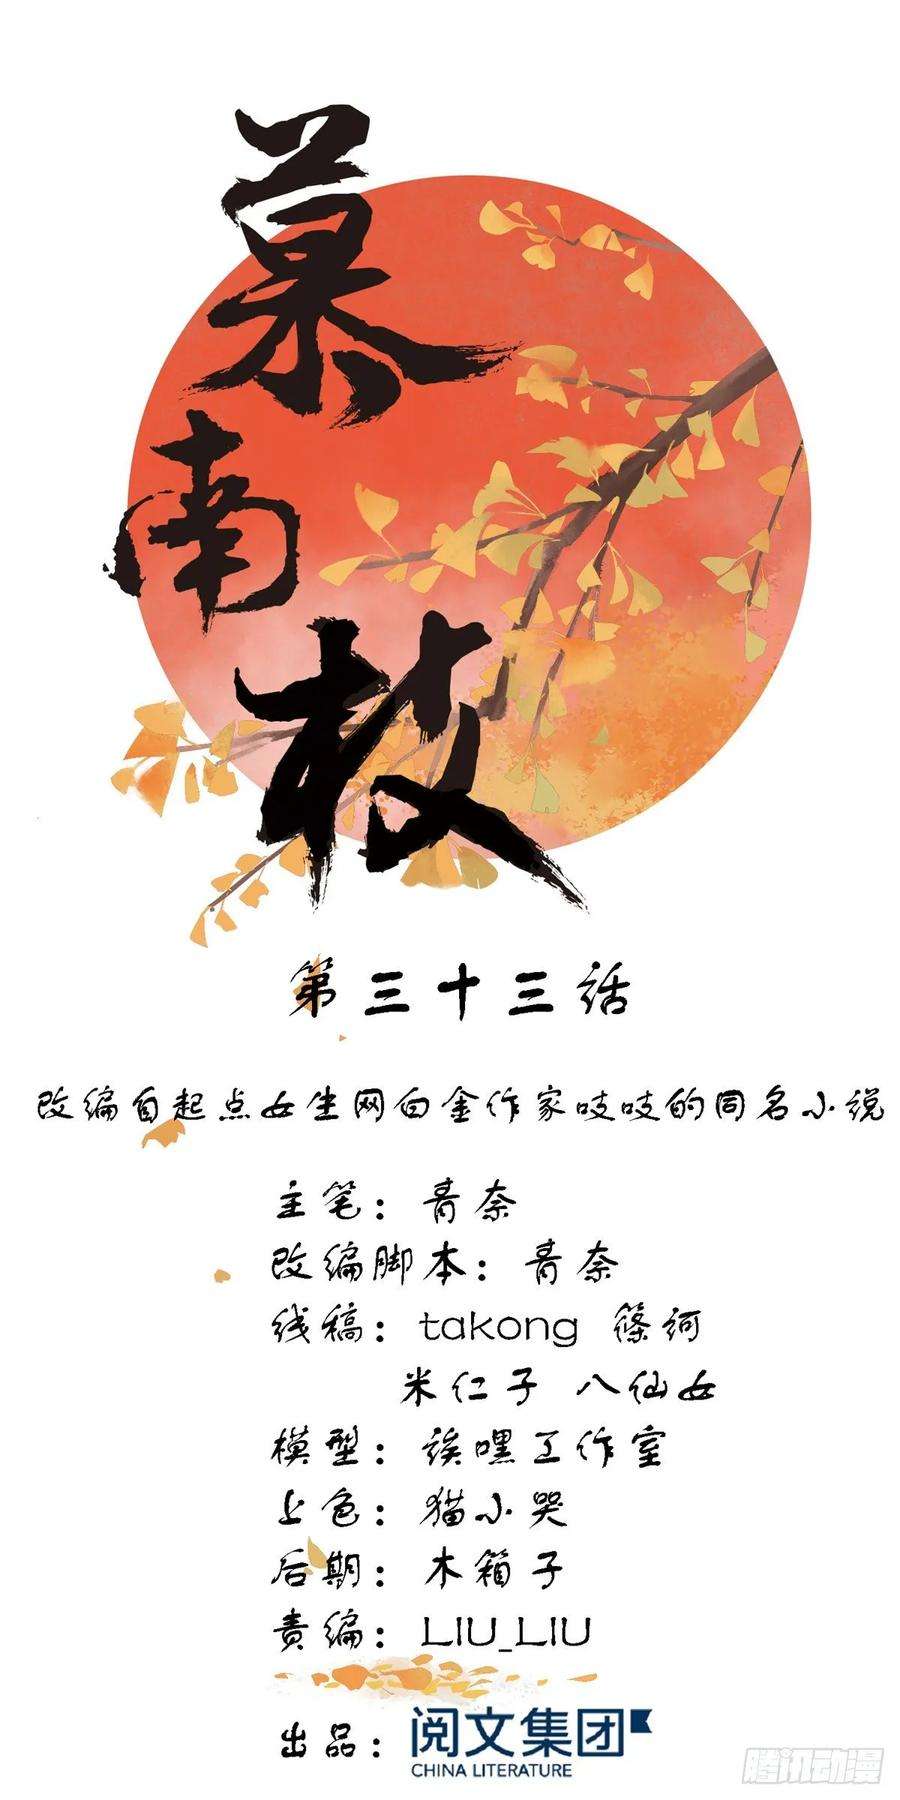 慕南枝
第三十三话
改编自起点女生网白金作家吱吱的同名小说
主笔：青奈
改编脚本：青奈
线稿：takong 篠河
米仁子 八仙女
模型：诶嘿工作室
上色：猫小哭
后期：木箱子
责编：LIU_LIU
出品：阅文集团
CHINA LITERATURE
腾讯动漫